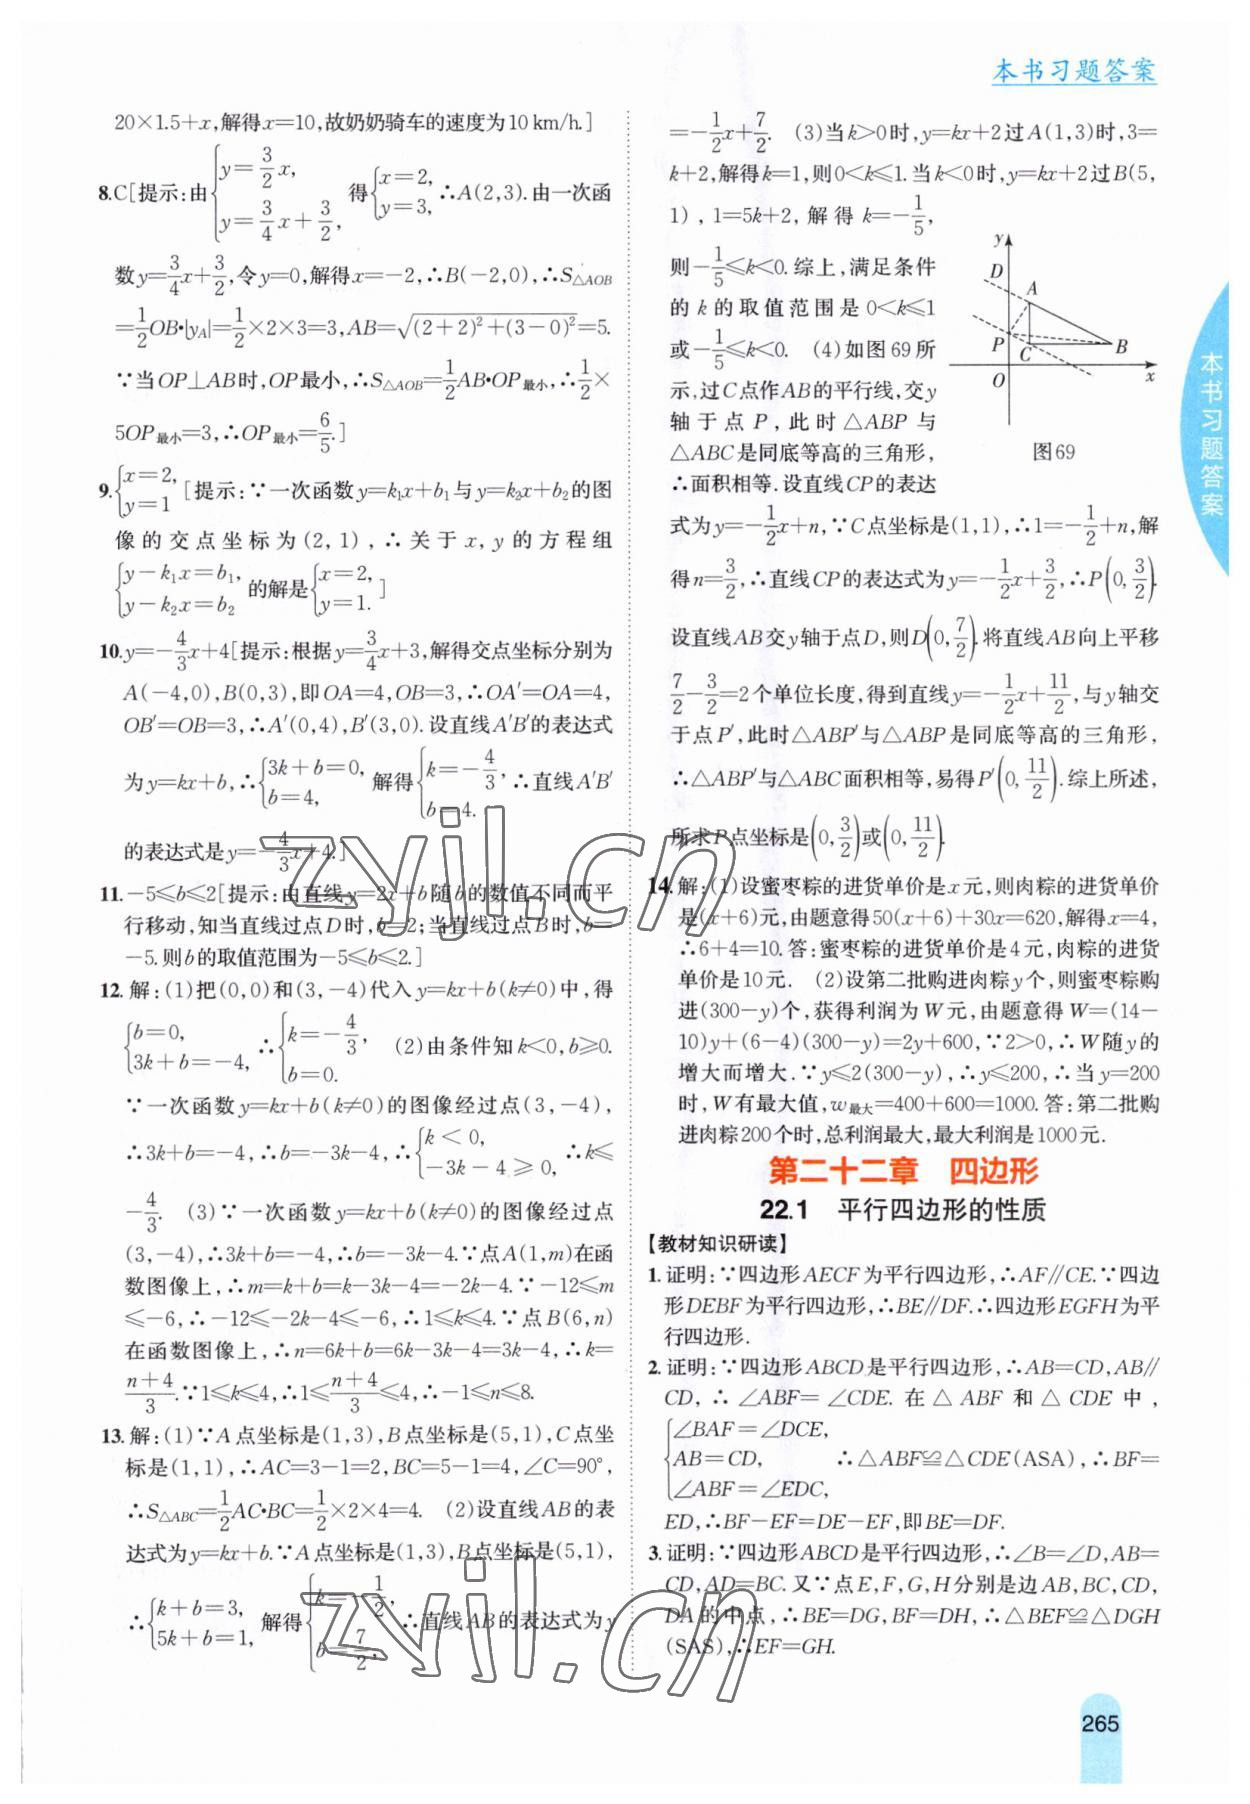 本书习题答案
20×1.5+x,解得x=10,故奶奶骑车的速度为10 km/h.]
8.C[提示:由{y=3/2x, y=3/4x+3/2, 得{x=2, y=3, ∴A(2,3).由一次函
数y=3/4x+3/2,令y=0,解得x=-2,∴B(-2,0),∴S△AOB
=1/2OB•|yA|=1/2×2×3=3,AB=√((2+2)²+(3-0)²)=5.
∵当OP⊥AB时,OP最小,∴S△AOB=1/2AB•OP最小,∴1/2×
5OP最小=3,∴OP最小=6/5.]
9.{x=2, y=1 [提示:∵一次函数y=k₁x+b₁与y=k₂x+b₂的图
像的交点坐标为(2,1),∴关于x,y的方程组
{y-k₁x=b₁, y-k₂x=b₂ 的解是{x=2, y=1. ]
10.y=-4/3x+4[提示:根据y=3/4x+3,解得交点坐标分别为
A(-4,0),B(0,3),即OA=4,OB=3,∴OA′=OA=4,
OB′=OB=3,∴A′(0,4),B′(3,0).设直线A′B′的表达式
为y=kx+b,∴{3k+b=0, b=4, 解得{k=-4/3, b=4. ∴直线A′B′
的表达式是y=-4/3x+4.]
11.-5≤b≤2[提示:由直线y=2x+b随b的数值不同而平
行移动,知当直线过点D时,b=2;当直线过点B时,b=
-5.则b的取值范围为-5≤b≤2.]
12.解:(1)把(0,0)和(3,-4)代入y=kx+b(k≠0)中,得
{b=0, 3k+b=-4, ∴{k=-4/3, b=0. (2)由条件知k<0,b≥0.
∵一次函数y=kx+b(k≠0)的图像经过点(3,-4),
∴3k+b=-4,∴b=-3k-4,∴{k<0, -3k-4≥0, ∴k≤
-4/3. (3)∵一次函数y=kx+b(k≠0)的图像经过点
(3,-4),∴3k+b=-4,∴b=-3k-4.∵点A(1,m)在函
数图像上,∴m=k+b=k-3k-4=-2k-4.∵-12≤m
≤-6,∴-12≤-2k-4≤-6,∴1≤k≤4.∵点B(6,n)
在函数图像上,∴n=6k+b=6k-3k-4=3k-4,∴k=
(n+4)/3.∵1≤k≤4,∴1≤(n+4)/3≤4,∴-1≤n≤8.
13.解:(1)∵A点坐标是(1,3),B点坐标是(5,1),C点坐
标是(1,1),∴AC=3-1=2,BC=5-1=4,∠C=90°,
∴S△ABC=1/2AC•BC=1/2×2×4=4. (2)设直线AB的表
达式为y=kx+b.∵A点坐标是(1,3),B点坐标是(5,1),
∴{k+b=3, 5k+b=1, 解得{k=-1/2, b=7/2, ∴直线AB的表达式为y
=-1/2x+7/2. (3)当k>0时,y=kx+2过A(1,3)时,3=
k+2,解得k=1,则0<k≤1.当k<0时,y=kx+2过B(5,
1),1=5k+2,解得k=-1/5,
则-1/5≤k<0.综上,满足条件
的k的取值范围是0<k≤1
或-1/5≤k<0. (4)如图69所
示,过C点作AB的平行线,交y
轴于点P,此时△ABP与
△ABC是同底等高的三角形,
∴面积相等.设直线CP的表达
y
D
A
P
C
B
O
x
图69
式为y=-1/2x+n,∵C点坐标是(1,1),∴1=-1/2+n,解
得n=3/2,∴直线CP的表达式为y=-1/2x+3/2,∴P(0,3/2).
设直线AB交y轴于点D,则D(0,7/2).将直线AB向上平移
7/2-3/2=2个单位长度,得到直线y=-1/2x+11/2,与y轴交
于点P′,此时△ABP′与△ABP是同底等高的三角形,
∴△ABP′与△ABC面积相等,易得P′(0,11/2).综上所述,
所求P点坐标是(0,3/2)或(0,11/2).
14.解:(1)设蜜枣粽的进货单价是x元,则肉粽的进货单价
是(x+6)元,由题意得50(x+6)+30x=620,解得x=4,
∴6+4=10.答:蜜枣粽的进货单价是4元,肉粽的进货
单价是10元. (2)设第二批购进肉粽y个,则蜜枣粽购
进(300-y)个,获得利润为W元,由题意得W=(14-
10)y+(6-4)(300-y)=2y+600,∵2>0,∴W随y的
增大而增大.∵y≤2(300-y),∴y≤200,∴当y=200
时,W有最大值,w最大=400+600=1000.答:第二批购
进肉粽200个时,总利润最大,最大利润是1000元.
第二十二章 四边形
22.1 平行四边形的性质
【教材知识研读】
1.证明:∵四边形AECF为平行四边形,∴AF∥CE.∵四边
形DEBF为平行四边形,∴BE∥DF.∴四边形EGFH为平
行四边形.
2.证明:∵四边形ABCD是平行四边形,∴AB=CD,AB∥
CD,∴∠ABF=∠CDE.在△ABF和△CDE中,
{∠BAF=∠DCE,
AB=CD, ∴△ABF≌△CDE(ASA),∴BF=
∠ABF=∠EDC,
ED,∴BF-EF=DE-EF,即BE=DF.
3.证明:∵四边形ABCD是平行四边形,∴∠B=∠D,AB=
CD,AD=BC.又∵点E,F,G,H分别是边AB,BC,CD,
DA的中点,∴BE=DG,BF=DH,∴△BEF≌△DGH
(SAS),∴EF=GH.
本书习题答案
265
zyjl.cn
zyjl.cn